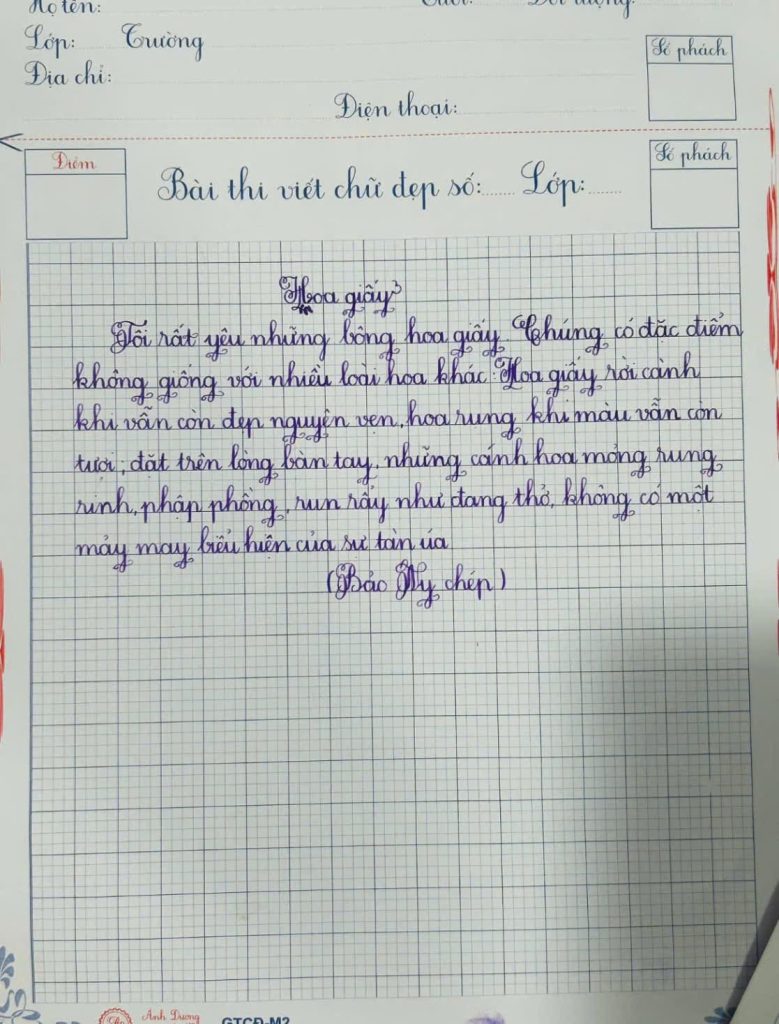 Họ tên:
Lớp: Trường
Địa chỉ:
Điện thoại:
Số phách
Điểm
Số phách
Bài thi viết chữ đẹp số:...... Lớp:......
Hoa giấy
Tôi rất yêu những bông hoa giấy. Chúng có đặc điểm
không giống với nhiều loài hoa khác. Hoa giấy rời cành
khi vẫn còn đẹp nguyên vẹn, hoa rụng khi màu vẫn còn
tươi, đặt trên lòng bàn tay, những cánh hoa mỏng rung
rinh, phập phồng, run rẩy như đang thở, không có một
mảy may biểu hiện của sự tàn úa
(Bảo Vy chép)
Ánh Dương
GTCĐ-M2